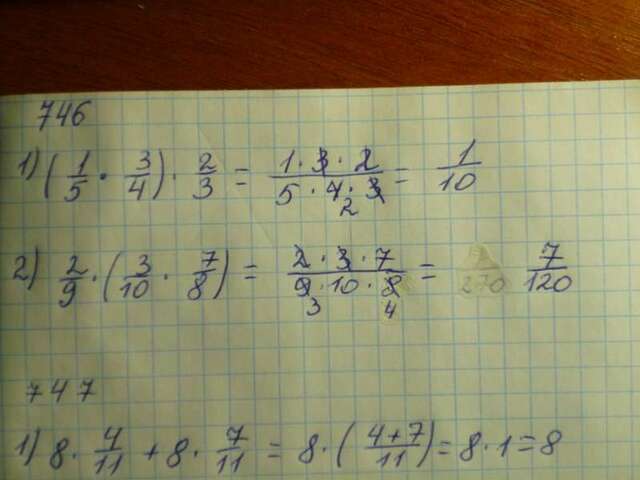 746
1) (1/5 · 3/4) · 2/3 = 1·3·2 / 5·4·3 = 1/10
2
2) 2/9 · (3/10 · 7/8) = 2·3·7 / 9·10·8 = 270 7/120
3 4
747
1) 8 · 4/11 + 8 · 7/11 = 8 · (4+7 / 11) = 8·1 = 8